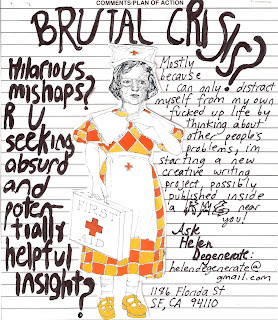 COMMENTS/PLAN OF ACTION
BRUTAL CRISIS?
Hilarious
mishaps?
R U
seeking
absurd
and
poten
tially
helpful
insight?
Mostly
because
I can only distract
myself from my own
fucked up life by
thinking about
other people's
problems, im
starting a new
creative writing
project, possibly
published inside
a near
you!
Ask
Helen
Degenerate:
helendegenerate@
gmail.com
1196 Florida St
SF, CA 94110
FIRST
AID